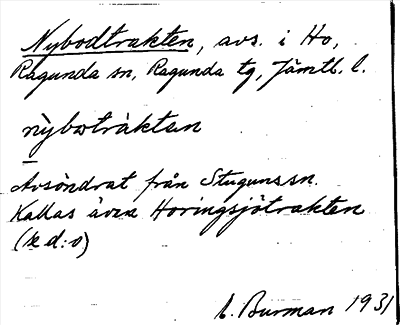 Nybodtrakten, avs. i Ho,
Ragunda sn, Ragunda tg, Jämtl. l.
nỳbωtràktεn
Avsöndrat från Stuguns sn.
Kallas även Horingsjötrakten
(se d:o)
E. Burman 1931